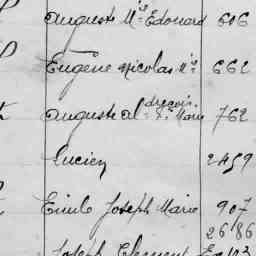 Auguste Mie Edouard 606
Eugène Nicolas Mie 662
Auguste al Fs Marie 762
Lucien 2459
Emile Joseph Marie 907
2686
Joseph Clement